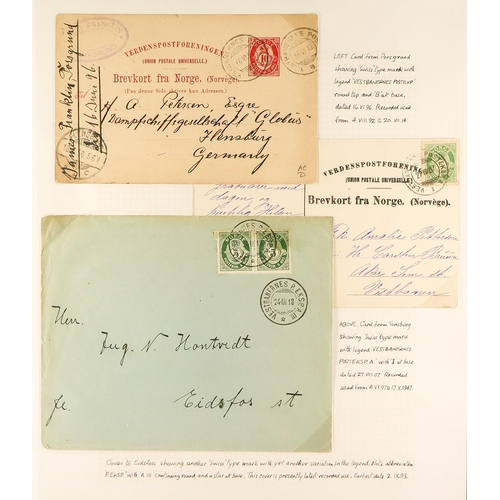 VERDENSPOSTFORENINGEN
(UNION POSTALE UNIVERSELLE.)
Brevkort fra Norge. (Norvège).
(Paa denne Side skrives kun Adressen.)
H. A. Petersen, Esqre
Dampschiffsgesellschaft "Globus"
Flensburg
Germany
Damer Franklin, Porsgrund
16 Juni 96.
LEFT Card from Porsgrund
showing 'swiss' type mark with
legend 'VESTBANERNES POSTEXP'
round top and 'B' at base,
dated 16.VI.96. Recorded used
from 4.VIII.92 to 20.VII.14.
VERDENSPOSTFORENIN
(UNION POSTALE UNIVERSELLE)
Brevkort fra Norge. (Norvège).
Frk. Amalie Pettersen
Hr. Carsten Bruun
Aker
Vestbanen
ABOVE Card from Tonsberg
showing 'Swiss' type mark
with legend VESTBANERNES
POSTEKSP. A. with 'I' at base
dated 27.VII.07. Recorded
used from
5 5
VESTBANERNES P.EKSP. A III
24 VII 18
Herr
Ing. N. Hontvedt
Eidsfos st
Cover to Eidsfos showing another 'swiss' type mark with yet another variation in the legend. Note abbreviation
'P.EKSP.' with A III continuing round and a star at base. This cover is presently latest recorded use. Earliest date 2.IX.09.